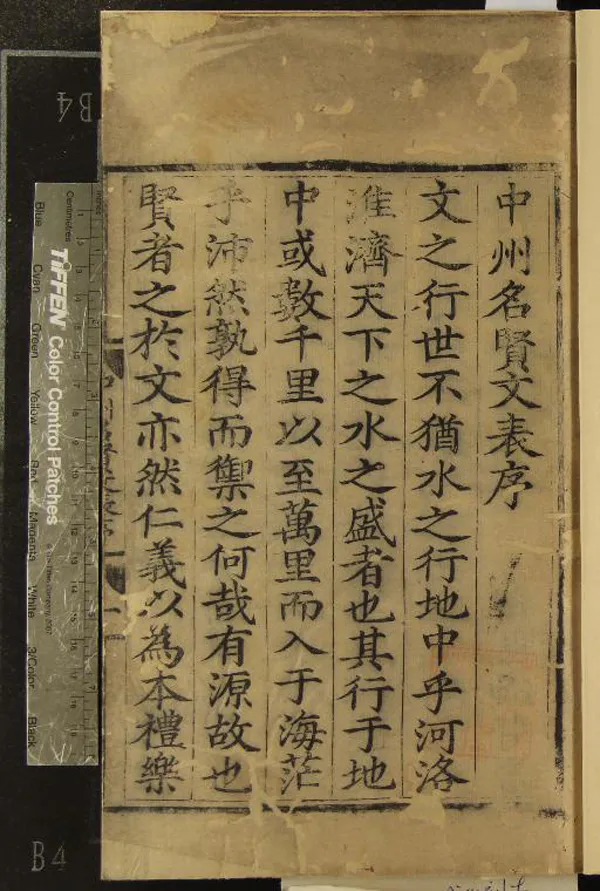 中州名賢文表序
文之行世不猶水之行地中乎河洛
淮濟天下之水之盛者也其行于地
中或數千里以至萬里而入于海茫
乎沛然孰得而禦之何哉有源故也
賢者之於文亦然仁義以為本禮樂
B4
B4
Centimetres
TIFFEN Color Control Patches
Blue
Cyan
Green
Yellow
Red
Magenta
White
3/Color
Black